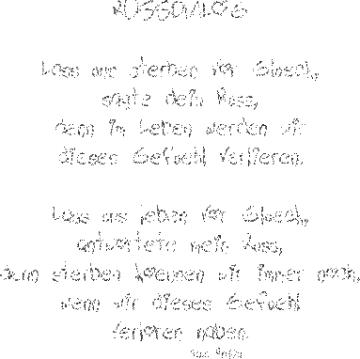 KUSSDIALOG
Lass uns sterben vor Glueck,
sagte dein Kuss,
denn im Leben werden wir
dieses Gefuehl verlieren.
Lass uns leben vor Glueck,
antwortete mein Kuss,
denn sterben koennen wir immer noch,
wenn wir dieses Gefuehl
verloren haben.